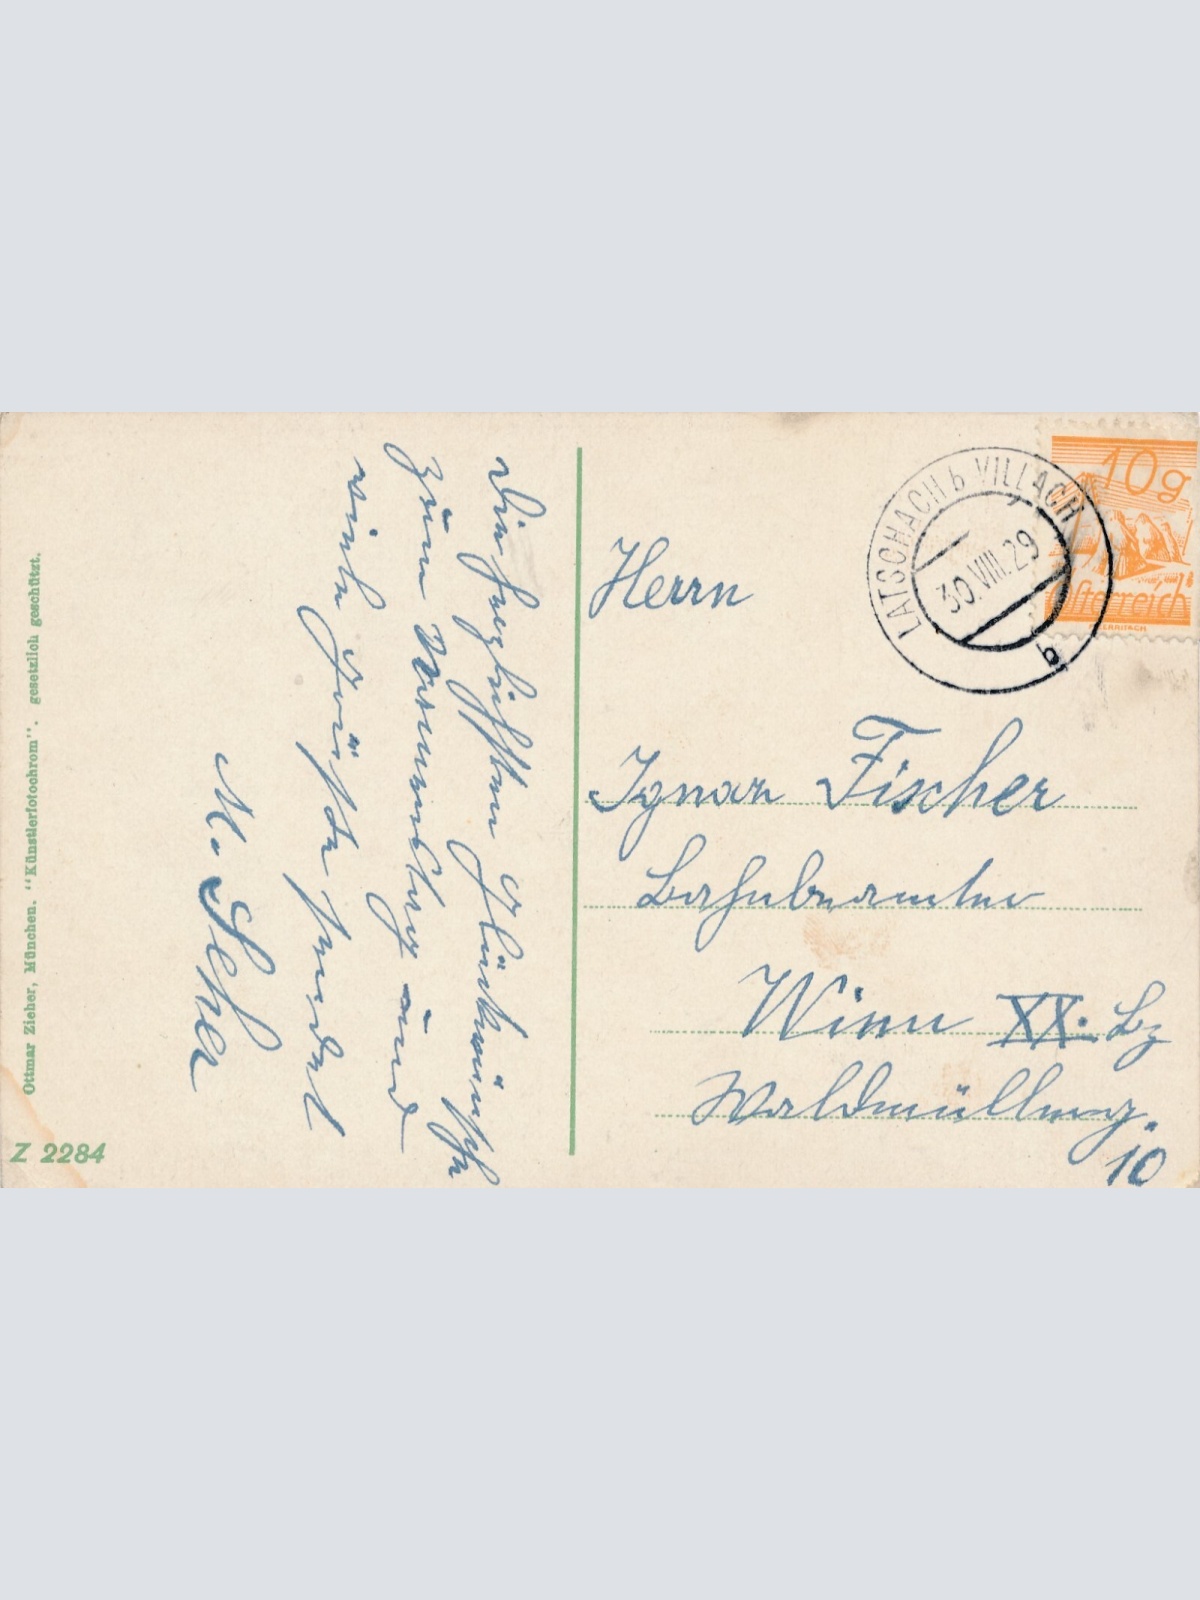 Die herzlichsten Glückwünsche
zum Namenstag und
viele Grüsse sendet
M. Seher
Herrn
Ignaz Fischer
Bahnbeamter
Wien XX. Bz
Waldmüllerg.
10
LATSCHACH b VILLACH
30.VIII.29
10g
Österreich
Ottmar Zieher, München. "Künstlerfotochrom". gesetzlich geschützt.
Z 2284